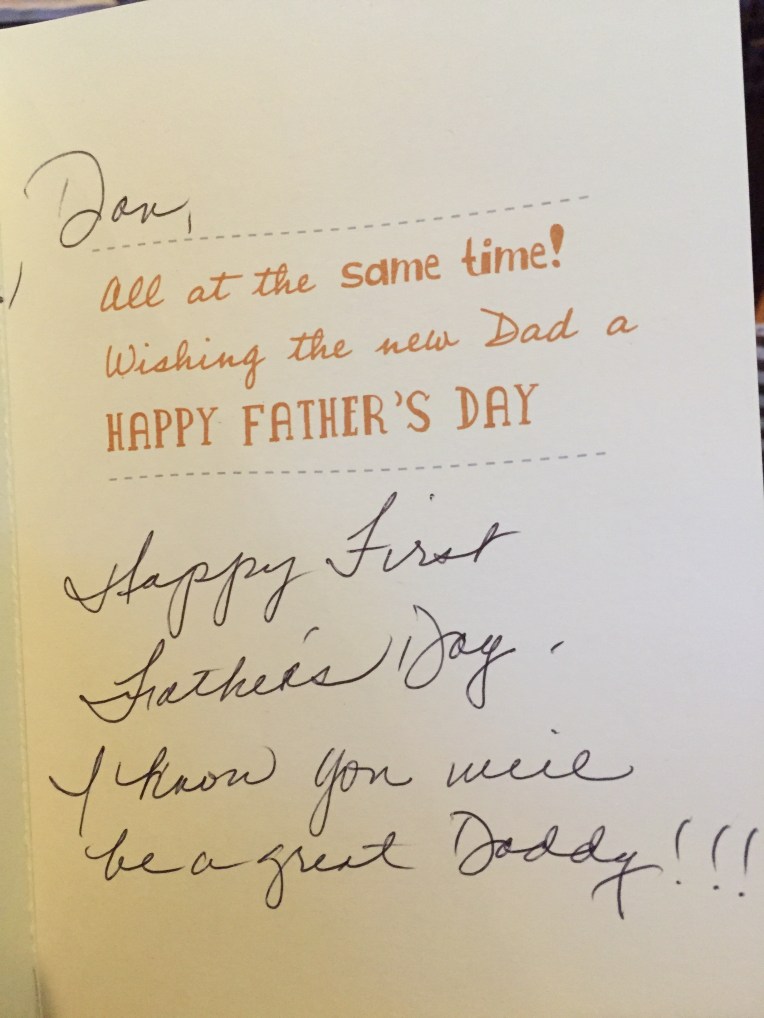 Don,
All at the same time!
Wishing the new Dad a
HAPPY FATHER'S DAY
Happy First
Father's Day.
I know you will
be a great Daddy!!!